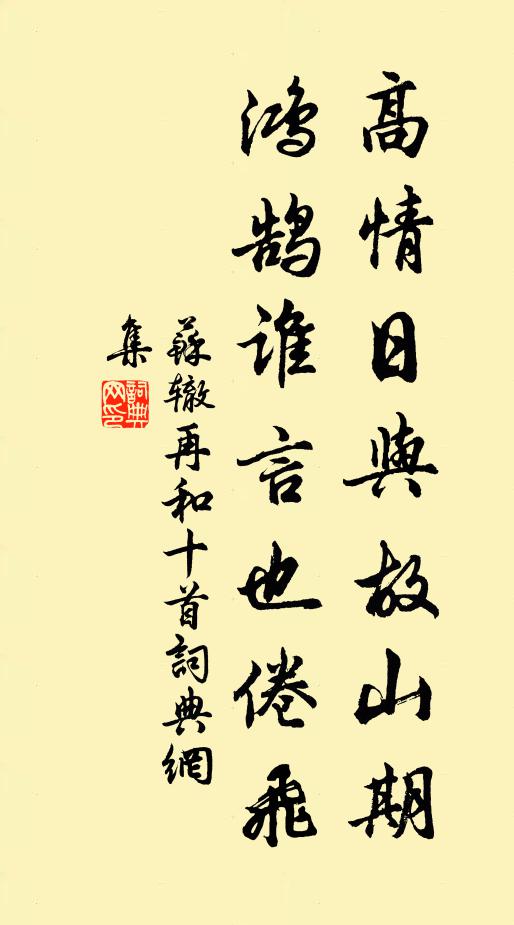 高情日與故山期
鴻鵠誰言也倦飛
蘇轍再和十首詞典網
集
詞典網印